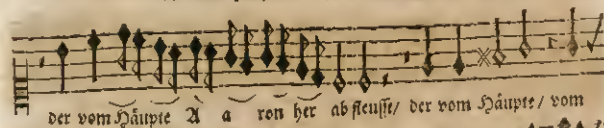 der vom Häupte A a ron her ab fleusſt/ der vom Häupte/ vom